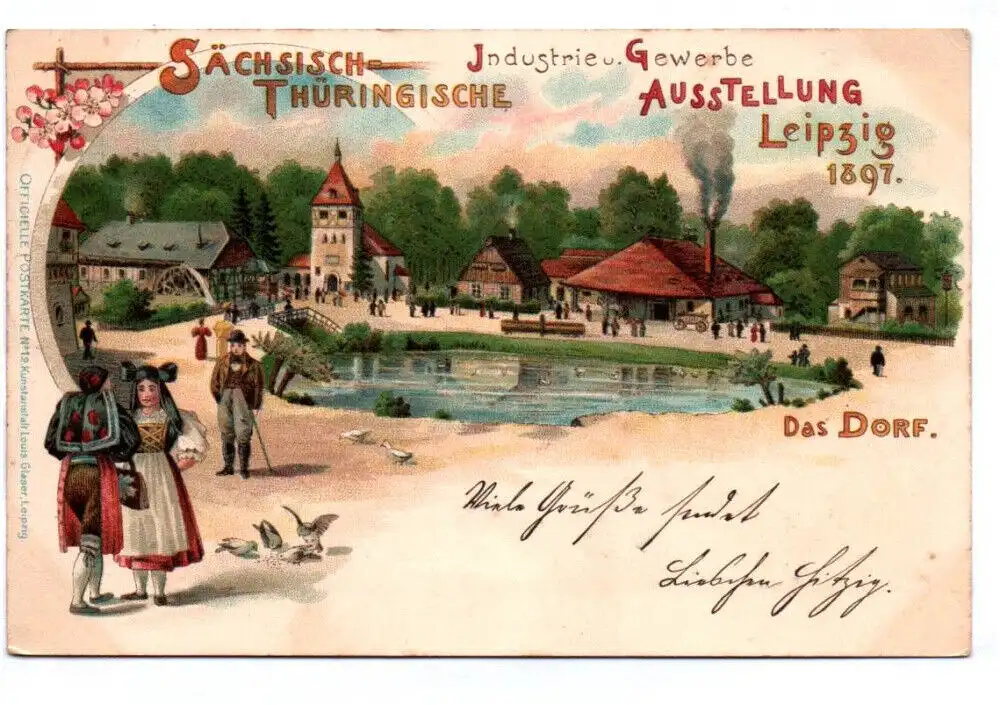 SÄCHSISCH-
THÜRINGISCHE
Industrie u. Gewerbe
AUSSTELLUNG
Leipzig
1897.
OFFICIELLE POSTKARTE No 12 Kunstanstalt Louis Glaser, Leipzig
Das DORF.
Viele Grüße sendet
Lieschen Hitzig.